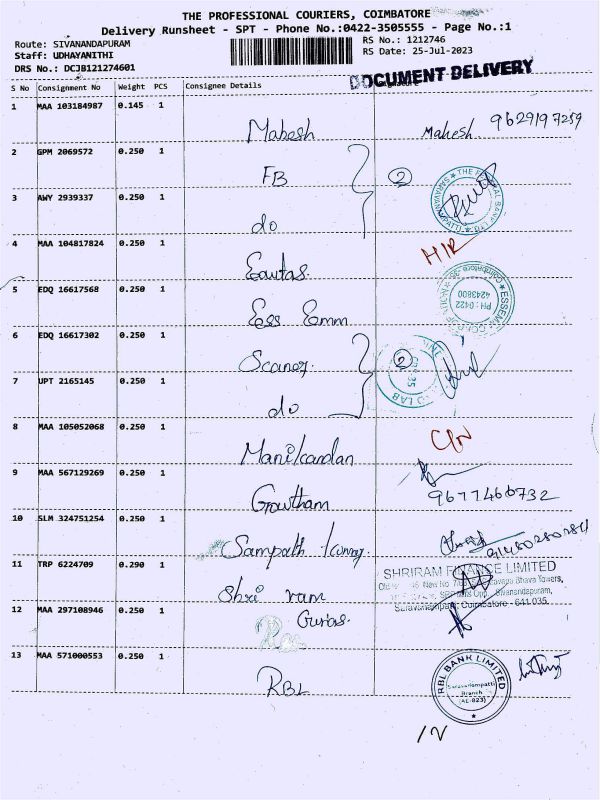 THE PROFESSIONAL COURIERS, COIMBATORE
Delivery Runsheet - SPT - Phone No.:0422-3505555 - Page No.:1
Route: SIVANANDAPURAM
RS No.: 1212746
Staff: UDHAYANITHI
RS Date: 25-Jul-2023
DRS No.: DCJB1212274601
DOCUMENT DELIVERY
S No Consignment No Weight PCS Consignee Details
1 MAA 103184987 0.145 1
Mahesh Mahesh 9629197259
2 GPM 2069572 0.250 1
FB 2
THE FEDERAL BANK LTD SARAVANAMPATTI
3 AWY 2939337 0.250 1
do
4 MAA 104817824 0.250 1
5 EDQ 16617568 0.250 1
Ess Emm
PH: 0422 4243800
6 EDQ 16617302 0.250 1
2
7 UPT 2165145 0.250 1
do
LAB
8 MAA 105052068 0.250 1
Manikandan
9 MAA 567129269 0.250 1
Gowtham 9677466732
10 SLM 324751254 0.250 1
Sampath
11 TRP 6224709 0.290 1
Shri ram
SHRIRAM FINANCE LIMITED
Towers,
Sivanandapuram,
Saravanampatti, Coimbatore - 641 035
12 MAA 297108946 0.250 1
13 MAA 571000553 0.250 1
RBL
RBL BANK LIMITED
Saravanampatti
Branch